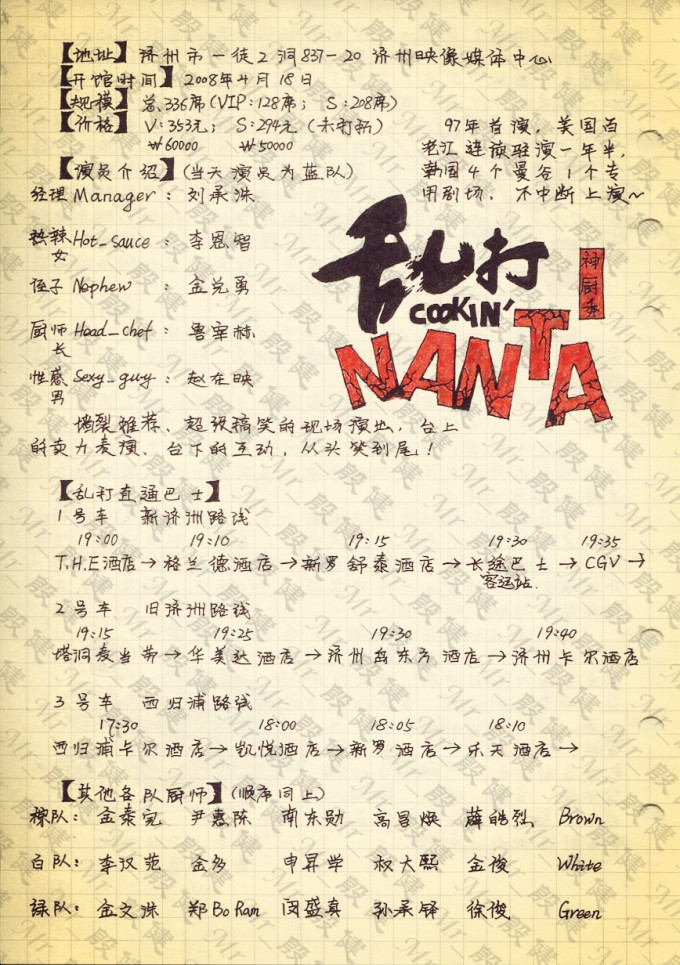 【地址】济州市一徒2洞837-20 济州映像媒体中心
【开馆时间】2008年4月18日
【规模】总336席(VIP:128席; S:208席)
【价格】V:353元; S:294元(未打折)
₩60000 ₩50000
97年首演，美国百
老汇连续驻演一年半，
韩国4个曼谷1个专
用剧场，不中断上演~
【演员介绍】(当天演员为蓝队)
经理 Manager: 刘承洙
热辣女 Hot_sauce: 李恩智
侄子 Nephew: 金兑勇
厨师长 Head_chef: 鲁宰赫
性感男 Sexy_guy: 赵在映
乱打
神厨秀
COOKIN'
NANTA
墙裂推荐、超级搞笑的现场演出，台上
的卖力表演、台下的互动，从头笑到尾！
【乱打直通巴士】
1号车 新济州路线
19:00 19:10 19:15 19:30 19:35
T.H.E酒店→格兰德酒店→新罗舒泰酒店→长途巴士客运站→CGV→
2号车 旧济州路线
19:15 19:25 19:30 19:40
塔洞麦当劳→华美达酒店→济州岛东方酒店→济州卡尔酒店
3号车 西归浦路线
17:30 18:00 18:05 18:10
西归浦卡尔酒店→凯悦酒店→新罗酒店→乐天酒店→
【其他各队厨师】(顺序同上)
棕队: 金泰完 尹惠陈 南东勋 高昌焕 薛皓烈 Brown
白队: 李汉范 金多 申昇学 权大熙 金俊 White
绿队: 金文洙 郑Bo Ram 闵盛真 孙承铎 徐俊 Green
Mr_殷健